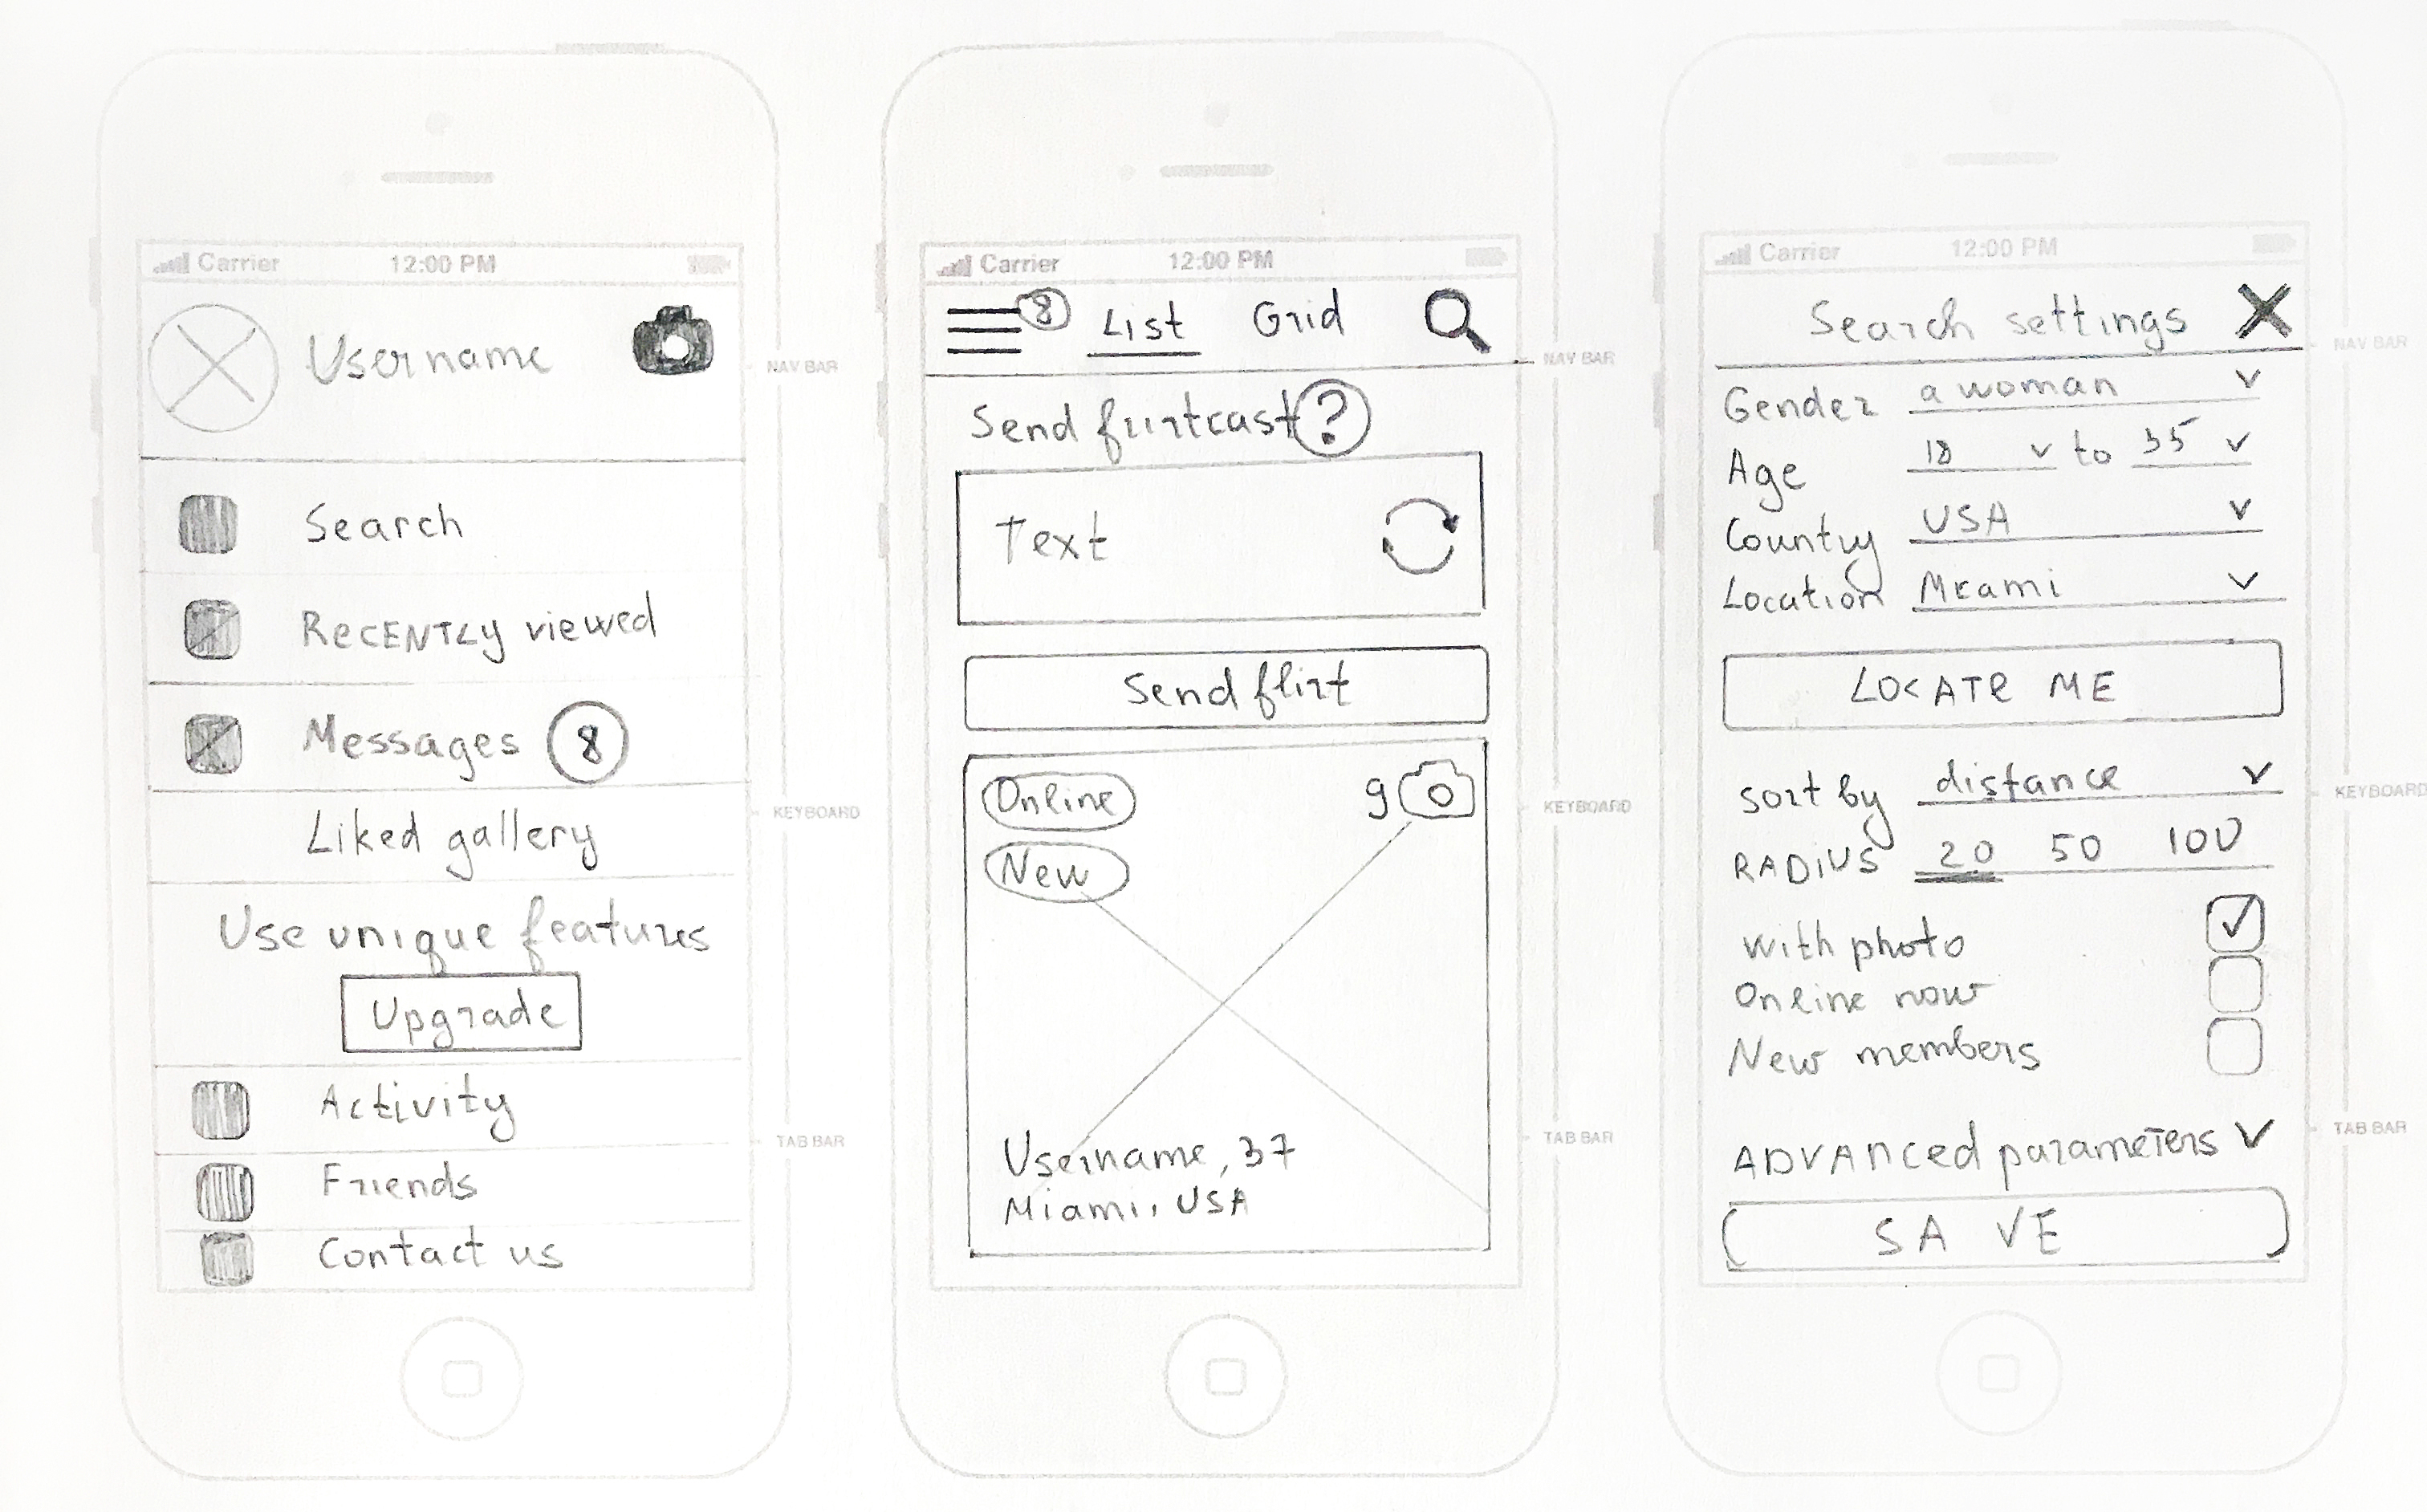 Carrier 12:00 PM
Username
NAV BAR
Search
RECENTLY viewed
Messages 8
KEYBOARD
Liked gallery
Use unique features
Upgrade
Activity
TAB BAR
Friends
Contact us
Carrier 12:00 PM
8 List Grid
NAV BAR
Send flirtcast ?
Text
Send flirt
Online 9
KEYBOARD
New
TAB BAR
Username, 37
Miami, USA
Carrier 12:00 PM
Search settings X
NAV BAR
Gender a woman
Age 18 to 35
Country USA
Location Miami
LOCATE ME
Sort by distance
KEYBOARD
RADIUS 20 50 100
With photo
Online now
New members
ADVANCED parameters
TAB BAR
SAVE